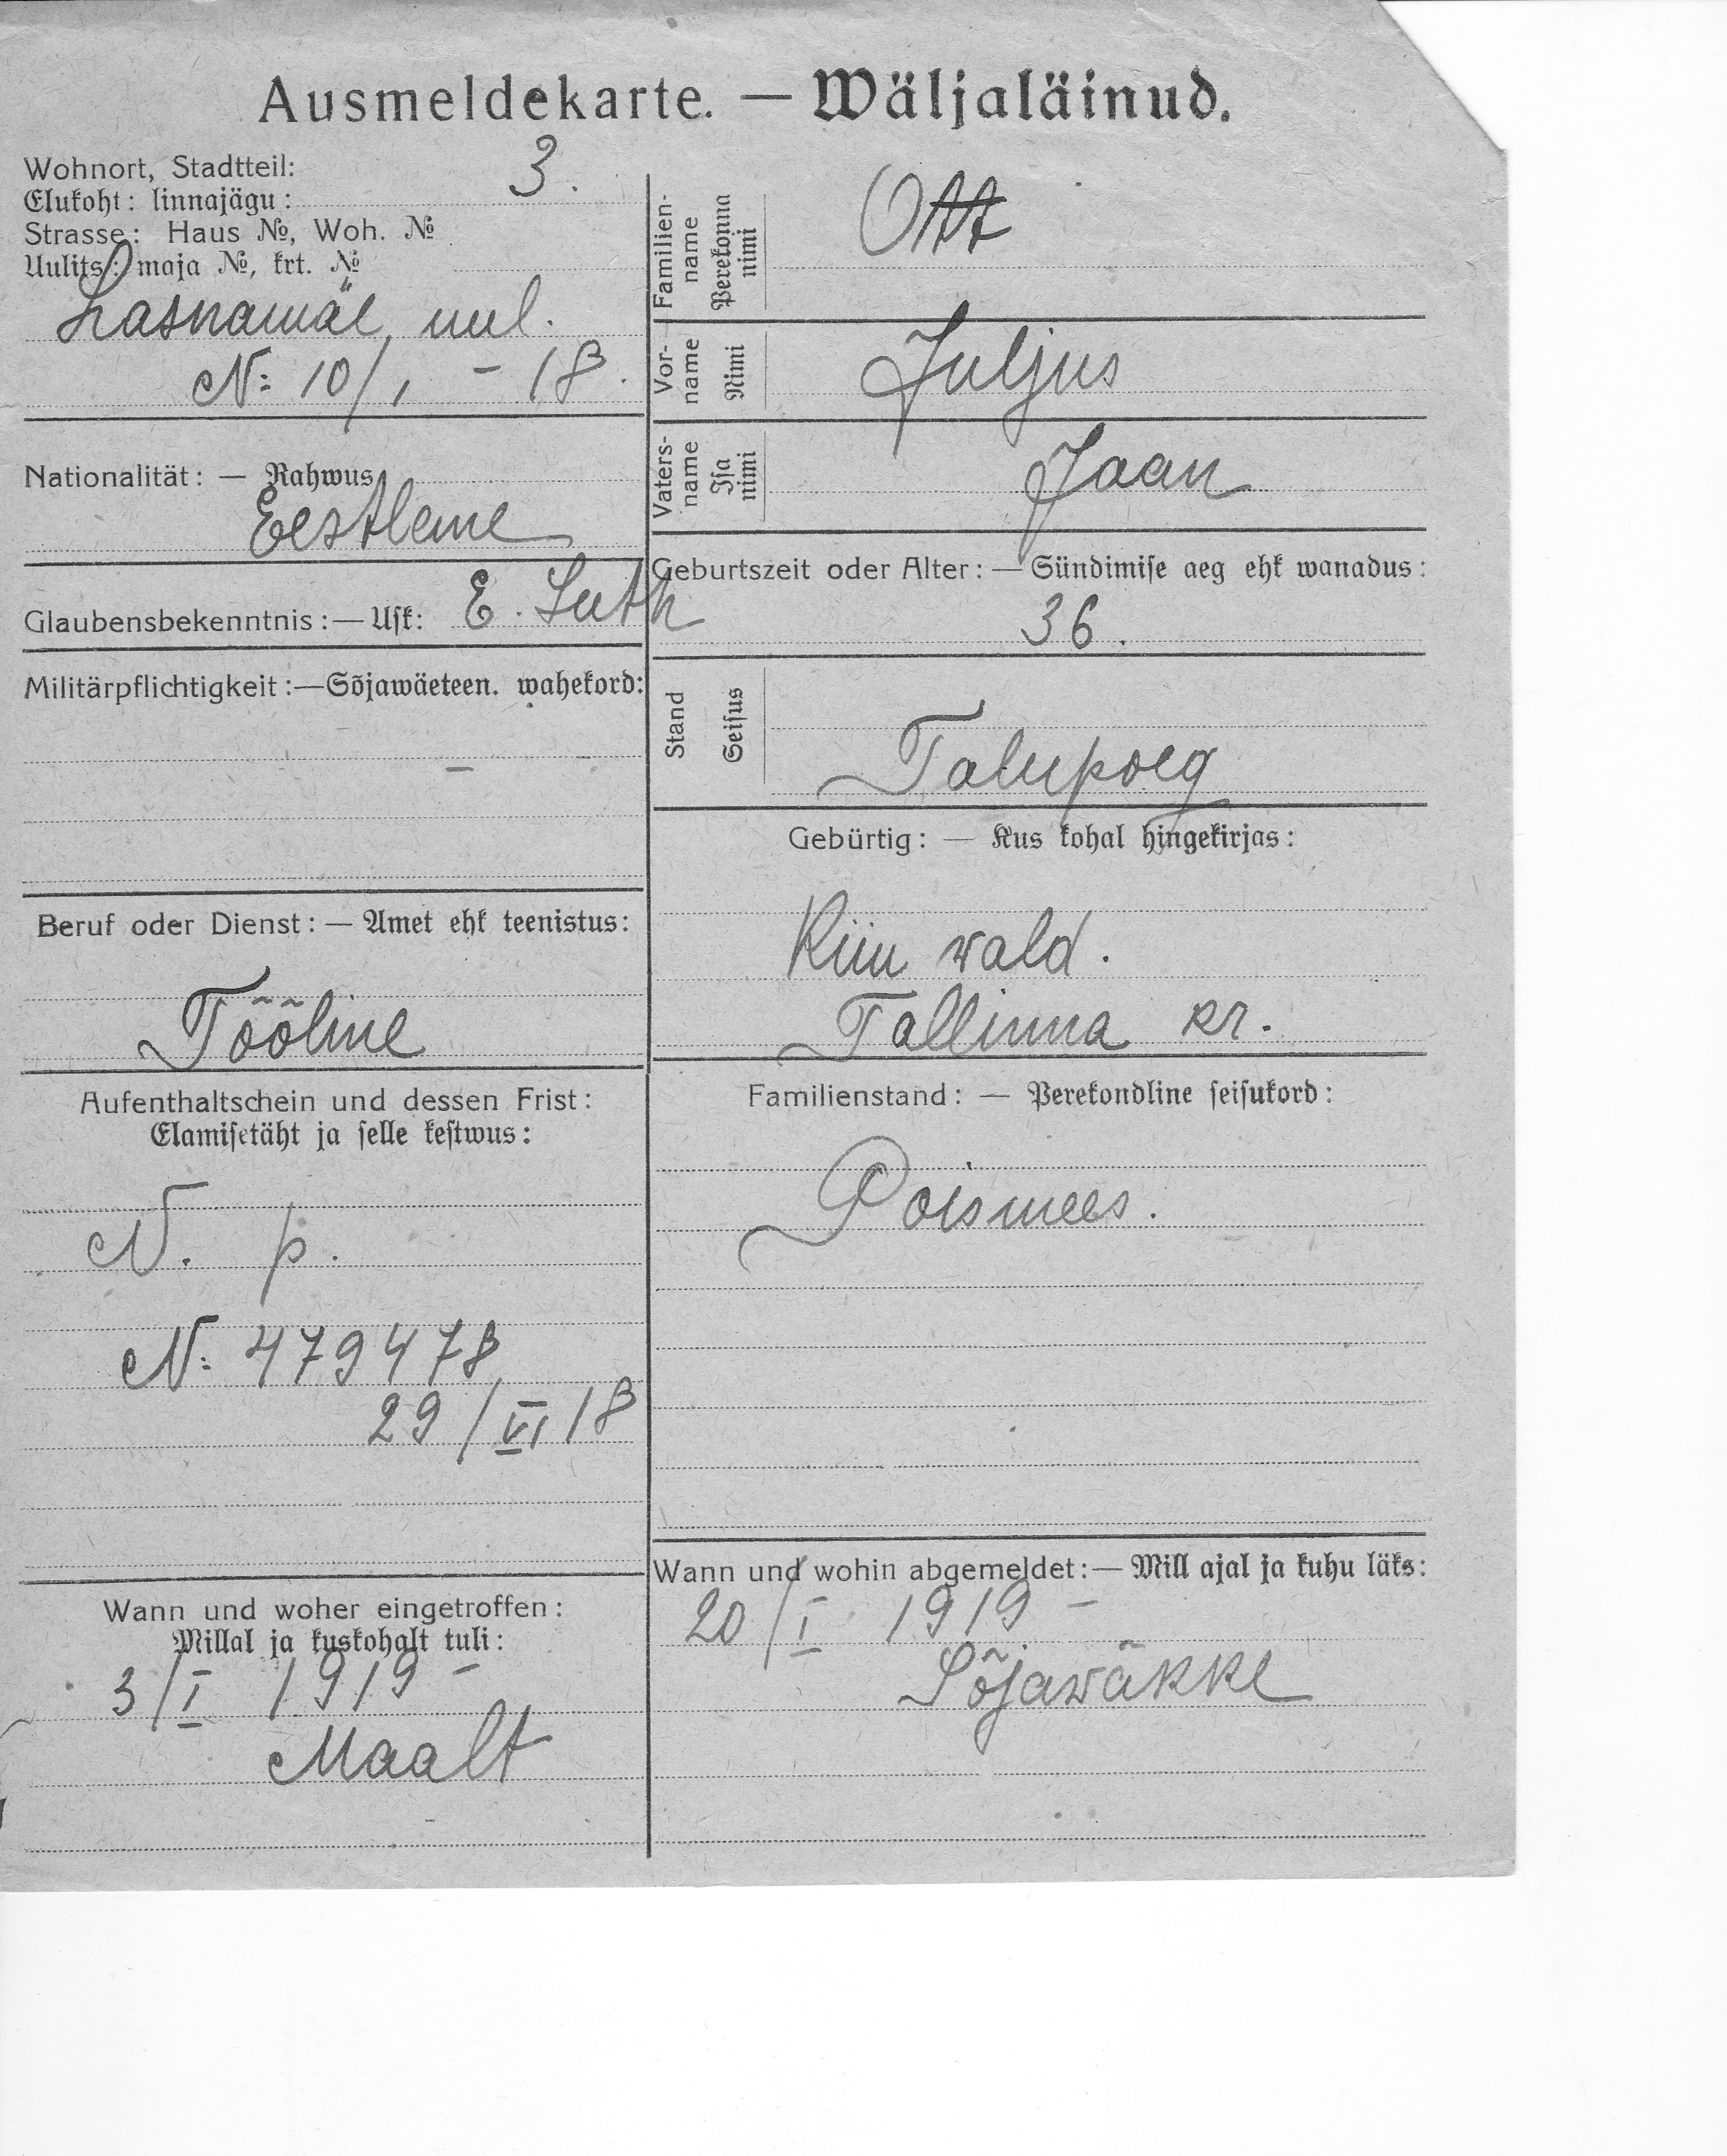 Ausmeldekarte. — Wäljaläinud.
Wohnort, Stadtteil:
Elukoht: linnajägu: 3.
Strasse: Haus №, Woh. №
Uulits: maja №, krt. №
Lasnamäe uul.
№ 10/1 - 18.
Nationalität: — Rahwus
Eestlane
Glaubensbekenntnis: — Usk: E. Luth
Militärpflichtigkeit: — Sõjawäeteen. wahekord:
—
Beruf oder Dienst: — Amet ehk teenistus:
Tööline
Aufenthaltschein und dessen Frist:
Elamisetäht ja selle kestwus:
N. p.
№ 479478
29/VI 18
Wann und woher eingetroffen:
Millal ja kuskohalt tuli:
3/I 1919 -
Maalt
Familien-
name
Perekonna
nimi
Ott
Vor-
name
Nimi
Juljus
Vaters-
name
Isa
nimi
Jaan
Geburtszeit oder Alter: — Sündimise aeg ehk wanadus:
36.
Stand
Seisus
Talupoeg
Gebürtig: — Kus kohal hingekirjas:
wald.
Tallinna kr.
Familienstand: — Perekondline seisukord:
Poismees.
Wann und wohin abgemeldet: — Mill ajal ja kuhu läks:
20/I 1919 -
Sõjawäkke